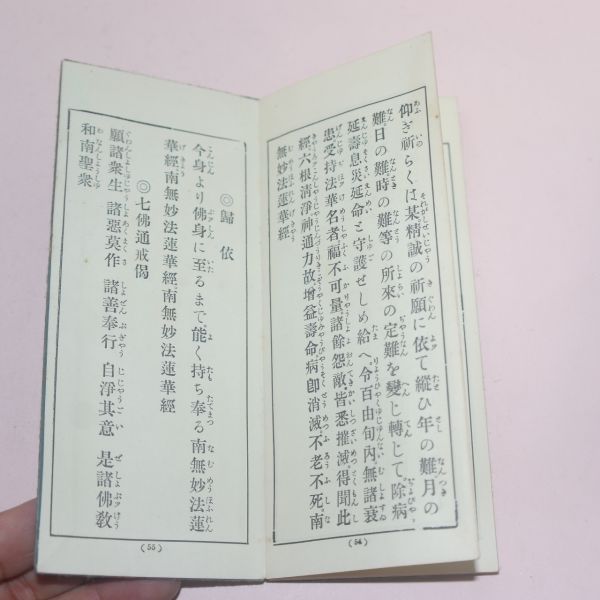 仰ぎ祈らくは某精誠の祈願に依て縱ひ年の難月の
難日の難時の難等の所來の定難を變じ轉じて除病
延壽息災延命と守護ぜしめ給へ、令百由旬內無諸衰
患受持法華名者福不可量諸餘怨敵皆悉摧滅得聞此
經六根清淨神通力故增益壽命病卽消滅不老不死、南
無妙法蓮華經
(54)
◎歸依
今身より佛身に至るまで能く持ち奉る南無妙法蓮
華經南無妙法蓮華經南無妙法蓮華經
◎七佛通戒偈
願諸衆生 諸惡莫作 諸善奉行 自淨其意 是諸佛敎
和南聖衆
(55)